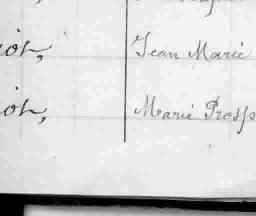 ot, Jean Marie
ot, Marie Prosp